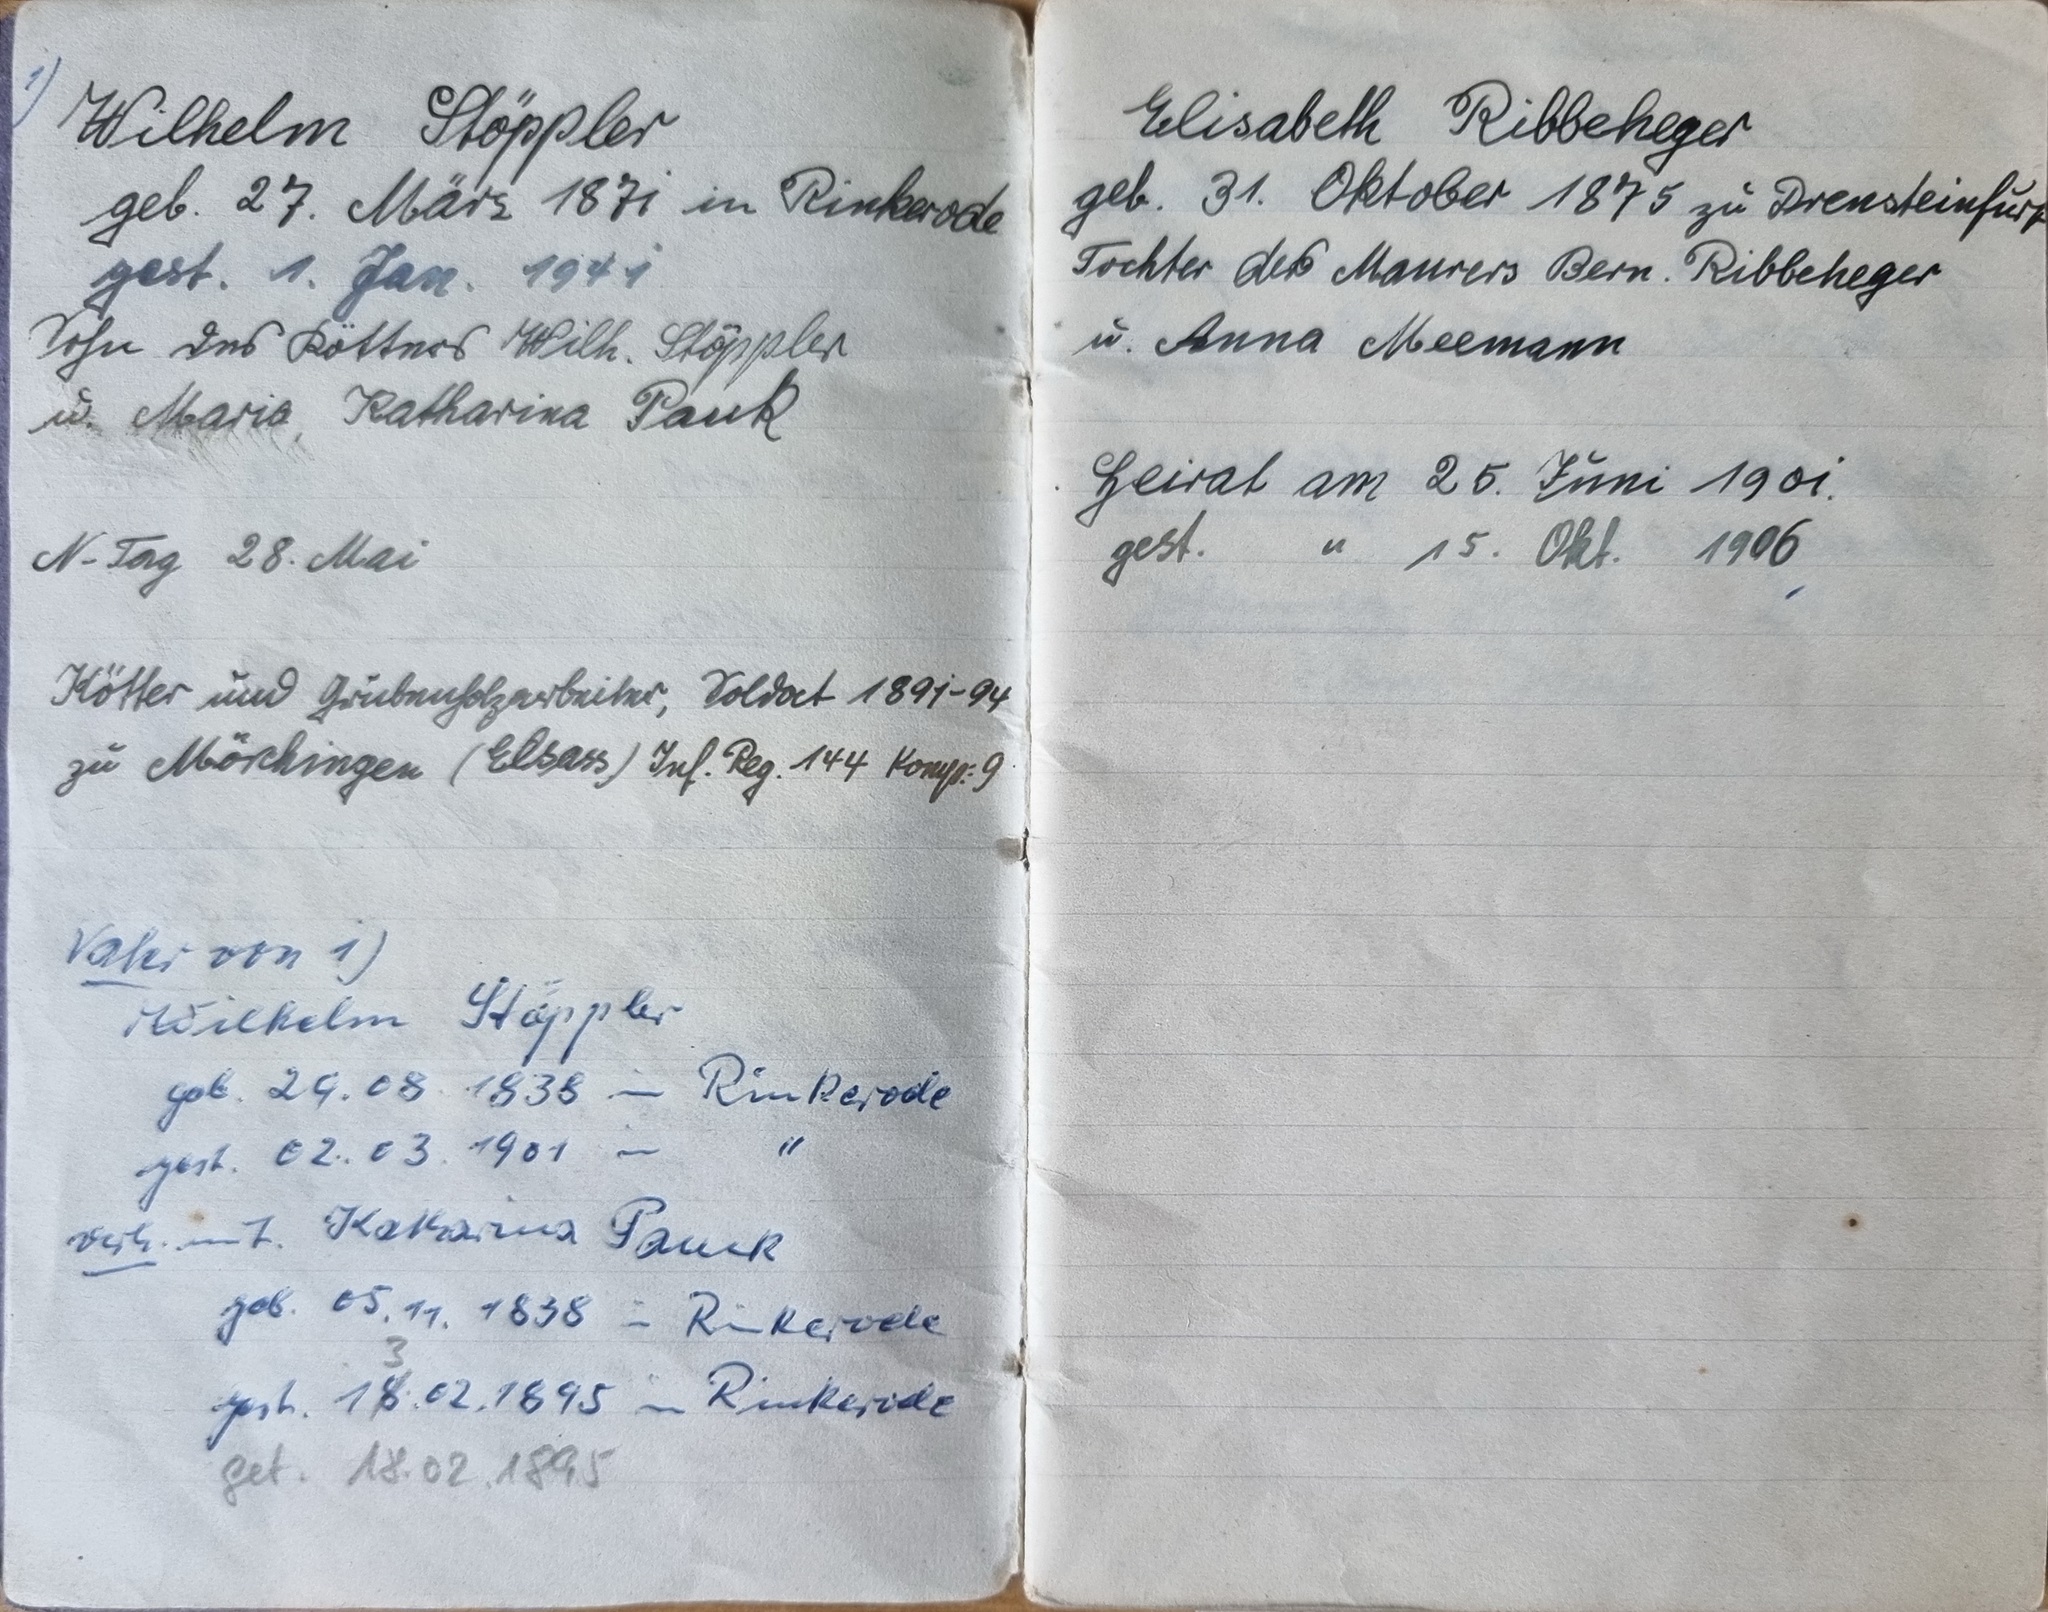 1)
Wilhelm Stöppler
geb. 27. März 1871 in Rinkerode
gest. 1. Jan. 1941
Sohn des Kötters Wilh. Stöppler
u. Maria, Katharina Pauk
N-Tag 28. Mai
Kötter und Grubenholzarbeiter, Soldat 1891-94
zu Mörchingen (Elsass) Inf. Reg. 144 Komp: 9
Vater von 1)
Wilhelm Stöppler
geb. 29.08.1838 in Rinkerode
gest. 02.03.1901 in "
verh. mit. Katharina Pauck
geb. 05.11.1838 in Rinkerode
3
gest. 18.02.1895 in Rinkerode
get. 18.02.1895
Elisabeth Ribbeheger
geb. 31. Oktober 1875 zu Drensteinfurt
Tochter des Maurers Bern. Ribbeheger
u. Anna Meemann
Heirat am 25. Juni 1901.
gest. " 15. Okt. 1906